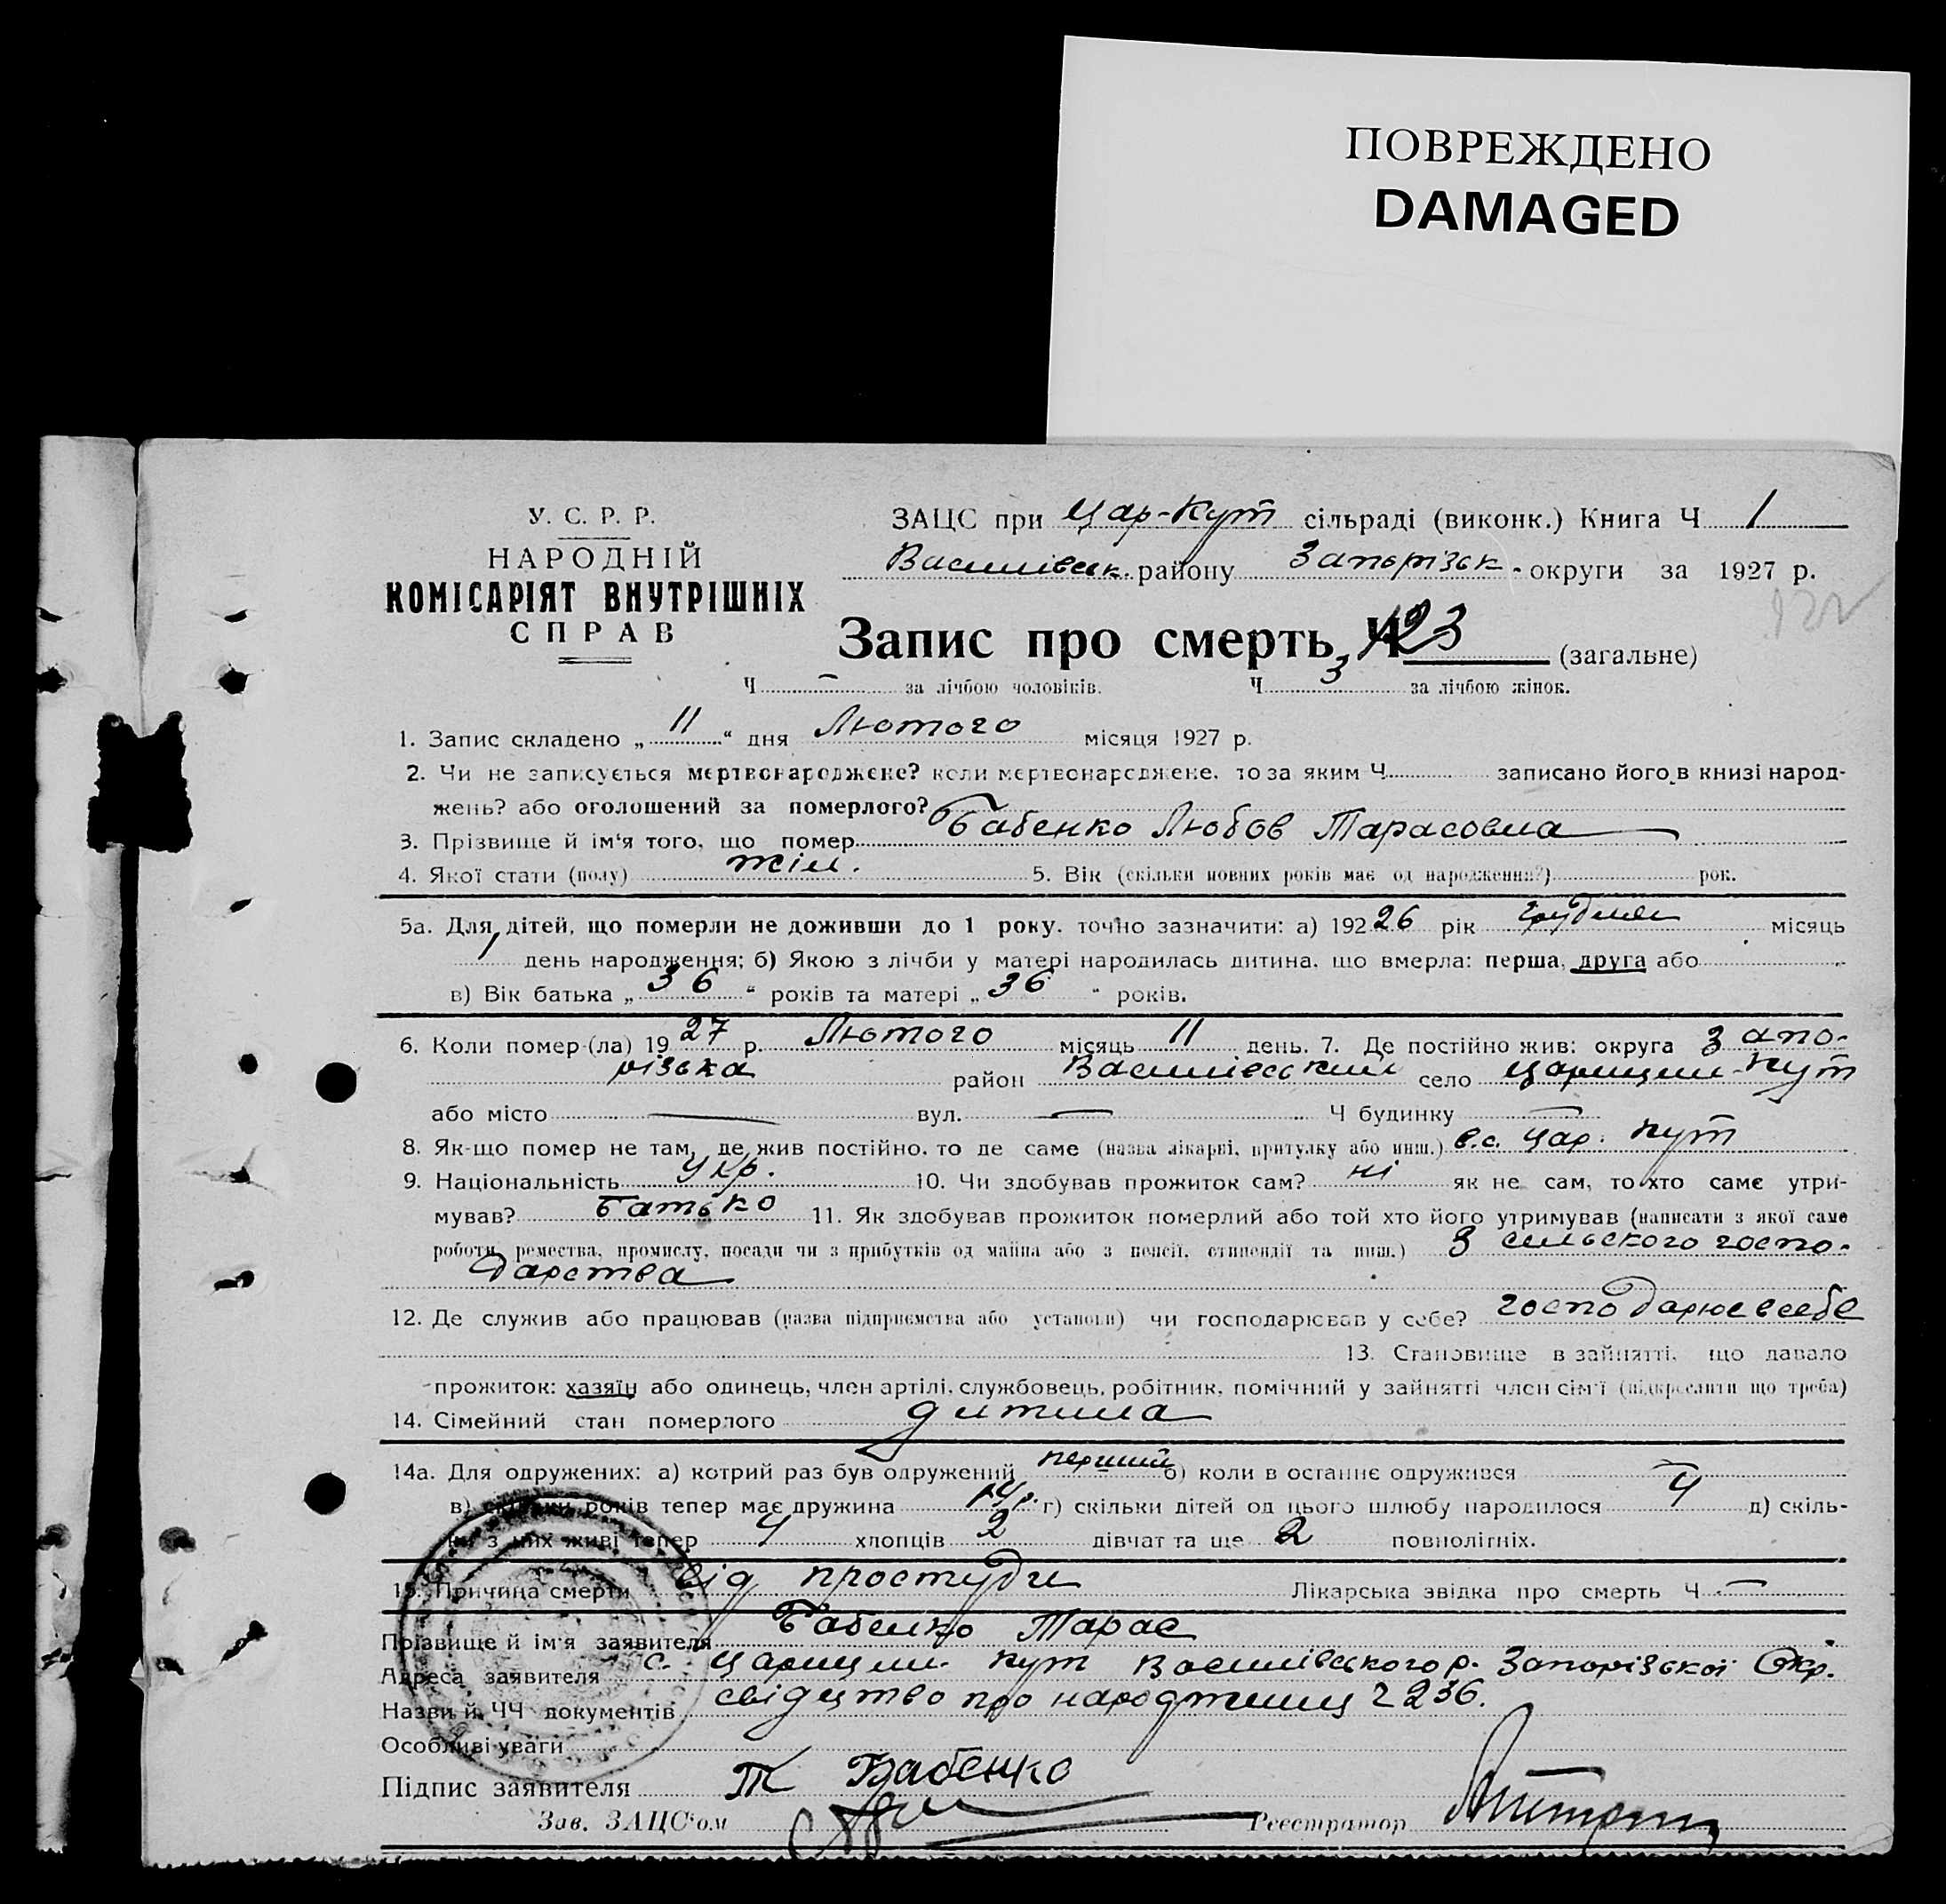 ПОВРЕЖДЕНО
DAMAGED
У. С. Р. Р.
НАРОДНІЙ
КОМІСАРІЯТ ВНУТРІШНІХ
СПРАВ
ЗАЦС при Цар-Кут сільраді (виконк.) Книга Ч 1
Василівськ. району Запорізьк. округи за 1927 р.
Запис про смерть, Ч 23 (загальне)
Ч — за лічбою чоловіків. Ч 3 за лічбою жінок.
1. Запис складено „11“ дня Лютого місяця 1927 р.
2. Чи не записується мертвонароджене? коли мертвонароджене, то за яким Ч записано його в книзі народ-
жень? або оголошений за померлого?
3. Прізвище й ім‘я того, що помер Бабенко Любов Тарасовна
4. Якої стати (полу) жін. 5. Вік (скільки повних років має од народження?) рок.
5а. Для дітей, що померли не доживши до 1 року, точно зазначити: а) 192 26 рік грудня місяць
1 день народження; б) Якою з лічби у матері народилась дитина, що вмерла: перша, друга або
в) Вік батька „36“ років та матері „36“ років.
6. Коли помер-(ла) 1927 р. Лютого місяць 11 день. 7. Де постійно жив: округа Запо-
різька район Василівський село Царицин-Кут
або місто — вул. — Ч будинку —
8. Як-що помер не там, де жив постійно, то де саме (назва лікарні, притулку або инш.) в с. Цар. Кут
9. Національність Укр. 10. Чи здобував прожиток сам? ні як не сам, то хто саме утри-
мував? Батько 11. Як здобував прожиток померлий або той хто його утримував (написати з якої саме
роботи, ремества, промислу, посади чи з прибутків од майна або з пенсії, стипендії та инш.) З сільського госпо-
дарства
12. Де служив або працював (назва підприємства або установи) чи господарював у себе? господарює в себе
13. Становище в зайнятті, що давало
прожиток: хазяїн або одинець, член артілі, службовець, робітник, помічний у зайнятті член сім‘ї (підкреслити що треба)
14. Сімейний стан померлого дитина
14а. Для одружених: а) котрий раз був одружений перший б) коли в останнє одружився —
в) скільки років тепер має дружина г) скільки дітей од цього шлюбу народилося 4 д) скіль-
ки з них живі тепер 4 хлопців 2 дівчат та ще 2 повнолітніх.
15. Причина смерти Від простуди Лікарська звідка про смерть Ч —
Прізвище й ім‘я заявителя Бабенко Тарас
Адреса заявителя с. Царицин Кут Василівського р. Запорізької Окр.
Назви й ЧЧ документів свідецтво про народження 236.
Особливі уваги
Підпис заявителя Т Бабенко
Зав. ЗАЦС‘ом Реєстратор